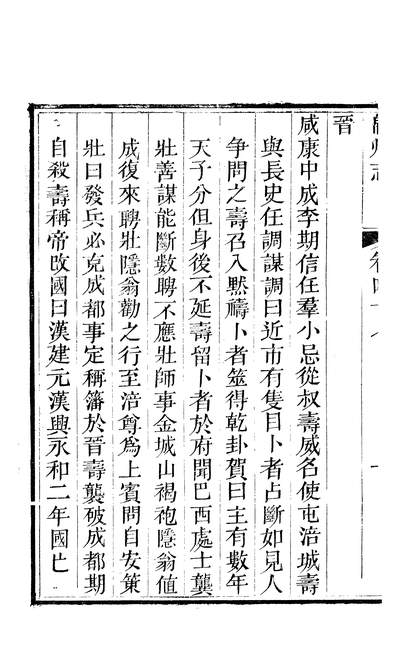 晉
咸康中成李期信任羣小忌從叔壽威名使屯涪城壽
與長史任調謀調曰近市有隻目卜者占斷如見人
爭問之壽召入黙禱卜者筮得乾卦賀曰主有數年
天子分但身後不延壽留卜者於府聞巴西處士龔
壯善謀能斷數聘不應壯師事金城山褐袍隱翁値
成復來聘壯隱翁勸之行至涪尊爲上賓問自安策
壯曰發兵必克成都事定稱籓於晉壽襲破成都期
自殺壽稱帝改國曰漢建元漢興永和二年國亡